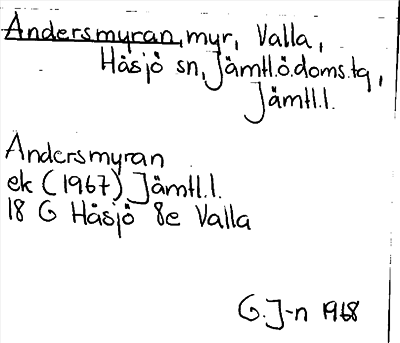 Andersmyran, myr, Valla,
Håsjö sn, Jämtl.ö.doms.tg,
Jämtl.l.
Andersmyran
ek (1967) Jämtl.l.
18 G Håsjö 8e Valla
G. J-n 1968